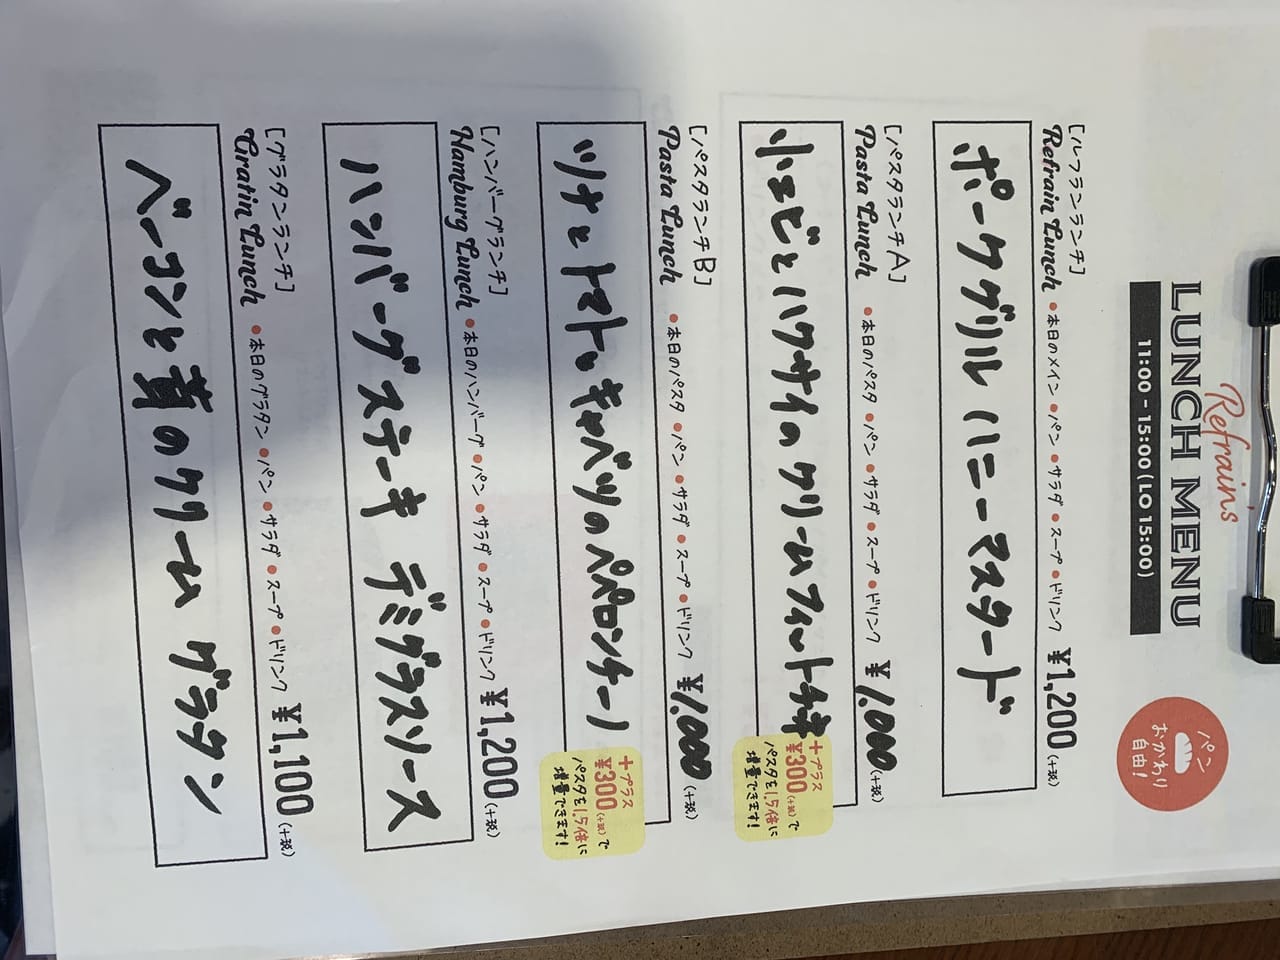 Refrain's
LUNCH MENU
11:00 - 15:00 (LO 15:00)
パン
おかわり
自由!
[ルフランランチ]
Refrain Lunch ●本日のメイン ●パン ●サラダ ●スープ ●ドリンク ¥1,200(+税)
ポークグリル ハニーマスタード
[パスタランチA]
Pasta Lunch ●本日のパスタ ●パン ●サラダ ●スープ ●ドリンク ¥1,000(+税)
小エビとハクサイのクリームフィットチーネ
+プラス
¥300(+税)で
パスタを1.5倍に
増量できます!
[パスタランチB]
Pasta Lunch ●本日のパスタ ●パン ●サラダ ●スープ ●ドリンク ¥1,000(+税)
ツナとトマト、キャベツのペペロンチーノ
+プラス
¥300(+税)で
パスタを1.5倍に
増量できます!
[ハンバーグランチ]
Hamburg Lunch ●本日のハンバーグ ●パン ●サラダ ●スープ ●ドリンク ¥1,200(+税)
ハンバーグステーキ デミグラスソース
[グラタンランチ]
Gratin Lunch ●本日のグラタン ●パン ●サラダ ●スープ ●ドリンク ¥1,100(+税)
ベーコンと茸のクリーム グラタン